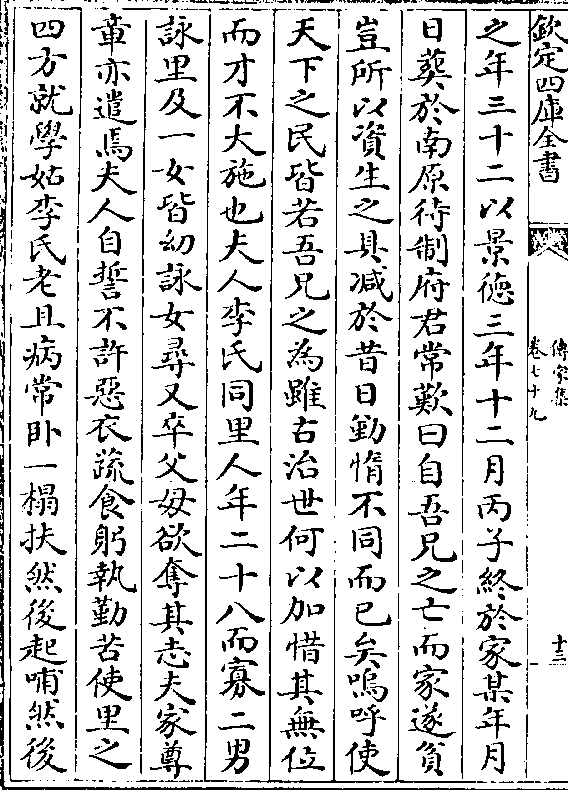 欽定四庫全書
傳家集
卷七十九
十三
之年三十二以景德三年十二月丙子終於家某年月
日葬於南原待制府君常歎曰自吾兄之亡而家遂貧
豈所以資生之具減於昔日勤惰不同而已矣嗚呼使
天下之民皆若吾兄之為雖古治世何以加惜其無位
而才不大施也夫人李氏同里人年二十八而寡二男
詠里及一女皆幼詠女尋又卒父母欲奪其志夫家尊
章亦遣焉夫人自誓不許惡衣蔬食躬執勤苦使里之
四方就學姑李氏老且病常卧一榻扶然後起哺然後